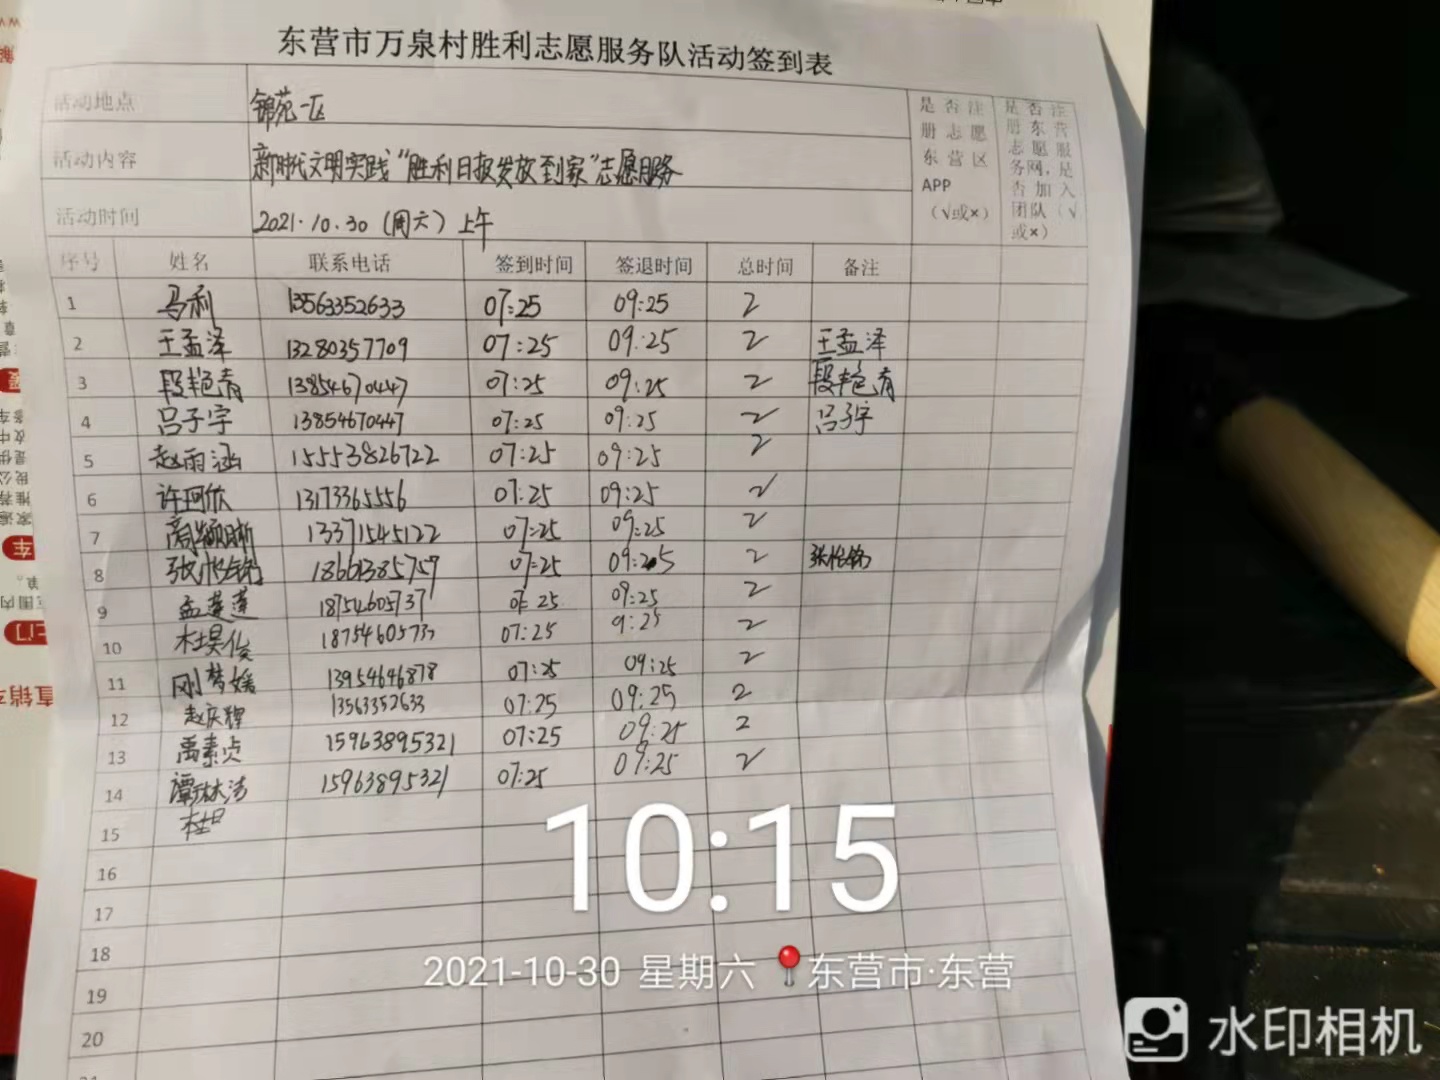 东营市万泉村胜利志愿服务队活动签到表
活动地点 锦苑一区
活动内容 新时代文明实践“胜利日报发放到家”志愿服务
活动时间 2021.10.30 (周六) 上午
是否注册志愿东营区APP（√或×）
是否注册东营志愿服务网，是否加入团队（√或×）
序号 姓名 联系电话 签到时间 签退时间 总时间 备注
1 马利 13563352633 07:25 09:25 2
2 王孟泽 13280357709 07:25 09:25 2 王孟泽
3 段艳青 13854670447 07:25 09:25 2 段艳青
4 吕子宇 13854670447 07:25 09:25 2 吕子宇
5 赵雨涵 15553826722 07:25 09:25 2
6 许珂欣 13173365556 07:25 09:25 2
7 13371545122 07:25 09:25 2
8 18661385757 07:25 09:25 2
9 孟莲莲 18754605737 07:25 09:25 2
10 杜昊俊 18754605737 07:25 9:25 2
11 刚梦媛 13954646878 07:25 09:25 2
12 赵庆辉 13563352633 07:25 09:25 2
13 禹素贞 15963895321 07:25 09:25 2
14 15963895321 07:25 09:25 2
15
16
17
18
19
20
21
10:15
2021-10-30 星期六 东营市·东营
水印相机